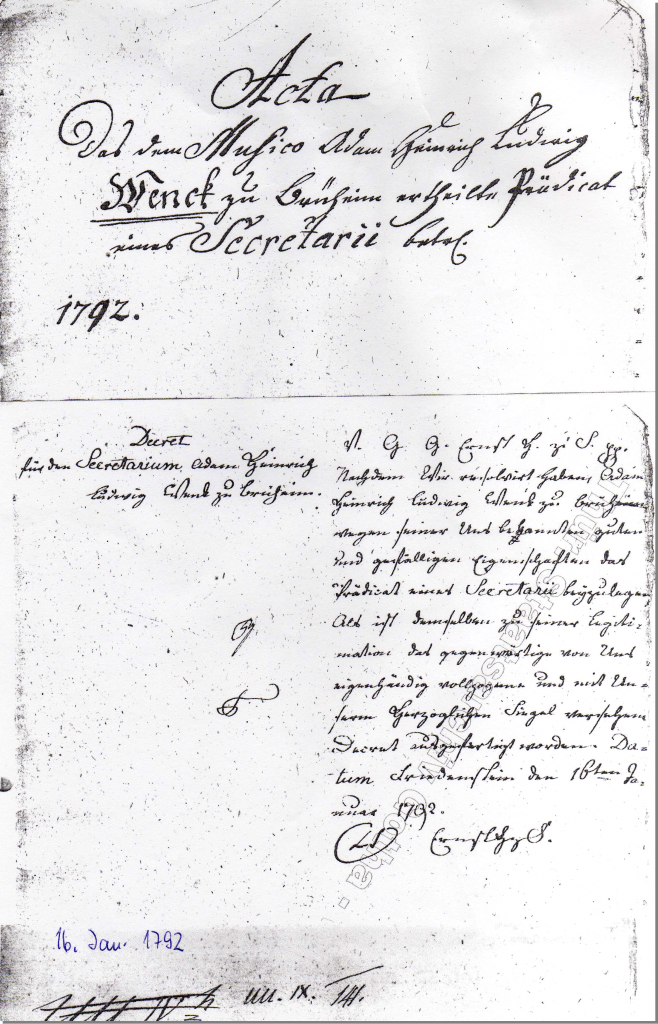 Acta
Das dem Musico Adam Heinrich Ludwig
Wenck zu Brüheim ertheilte Prädicat
eines Secretarii betr.
1792.
Decret
für den Secretarium Adam Heinrich
Ludwig Wenk zu Brüheim.
V. G. G. Ernst H. z. S. pp.
Nachdem Wir resolvirt haben, Adam
Heinrich Ludwig Wenk zu Brüheim
wegen seiner Uns bekannten guten
und gefälligen Eigenschaften das
Prädicat eines Secretarii beyzulegen
Als ist demselben zu seiner Legiti-
mation das gegenwärtige von Uns
eigenhändig vollzogene und mit Un-
serm Herzoglichen Siegel versehene
Decret ausgefertigt worden. Da-
tum Friedenstein den 16ten Ja-
nuar 1792.
LS Ernst HzS.
16. Jan. 1792
UU. IX.